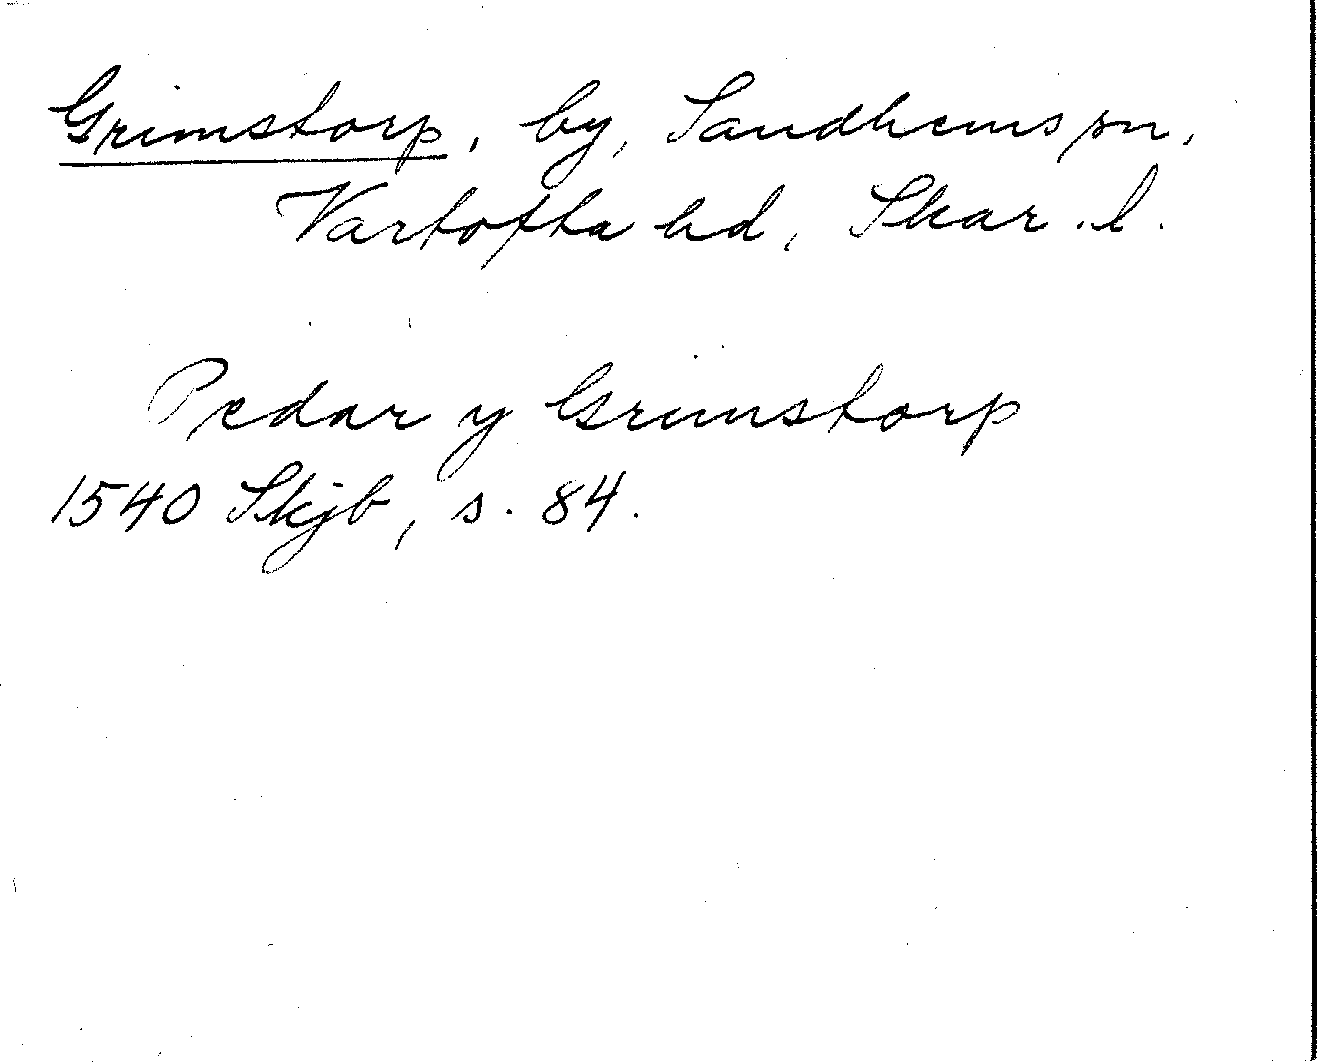 Grimstorp, by, Sandhems sn,
Vartofta hd, Skar. l.
Pedar y Grimstorp
1540 Skjb, s. 84.